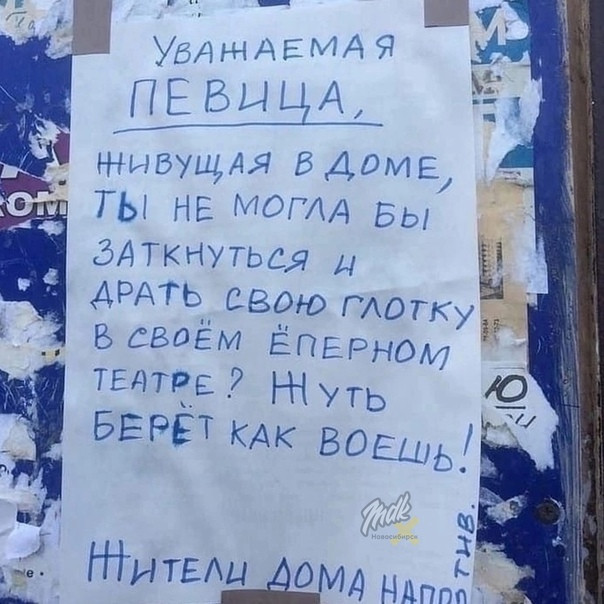 УВАЖАЕМАЯ
ПЕВИЦА,
ЖИВУЩАЯ В ДОМЕ,
ТЫ НЕ МОГЛА БЫ
ЗАТКНУТЬСЯ И
ДРАТЬ СВОЮ ГЛОТКУ
В СВОЁМ ЁПЕРНОМ
ТЕАТРЕ? ЖУТЬ
БЕРЁТ КАК ВОЕШЬ!
ЖИТЕЛИ ДОМА НАПРОТИВ.
mdk
Новосибирск
Ю